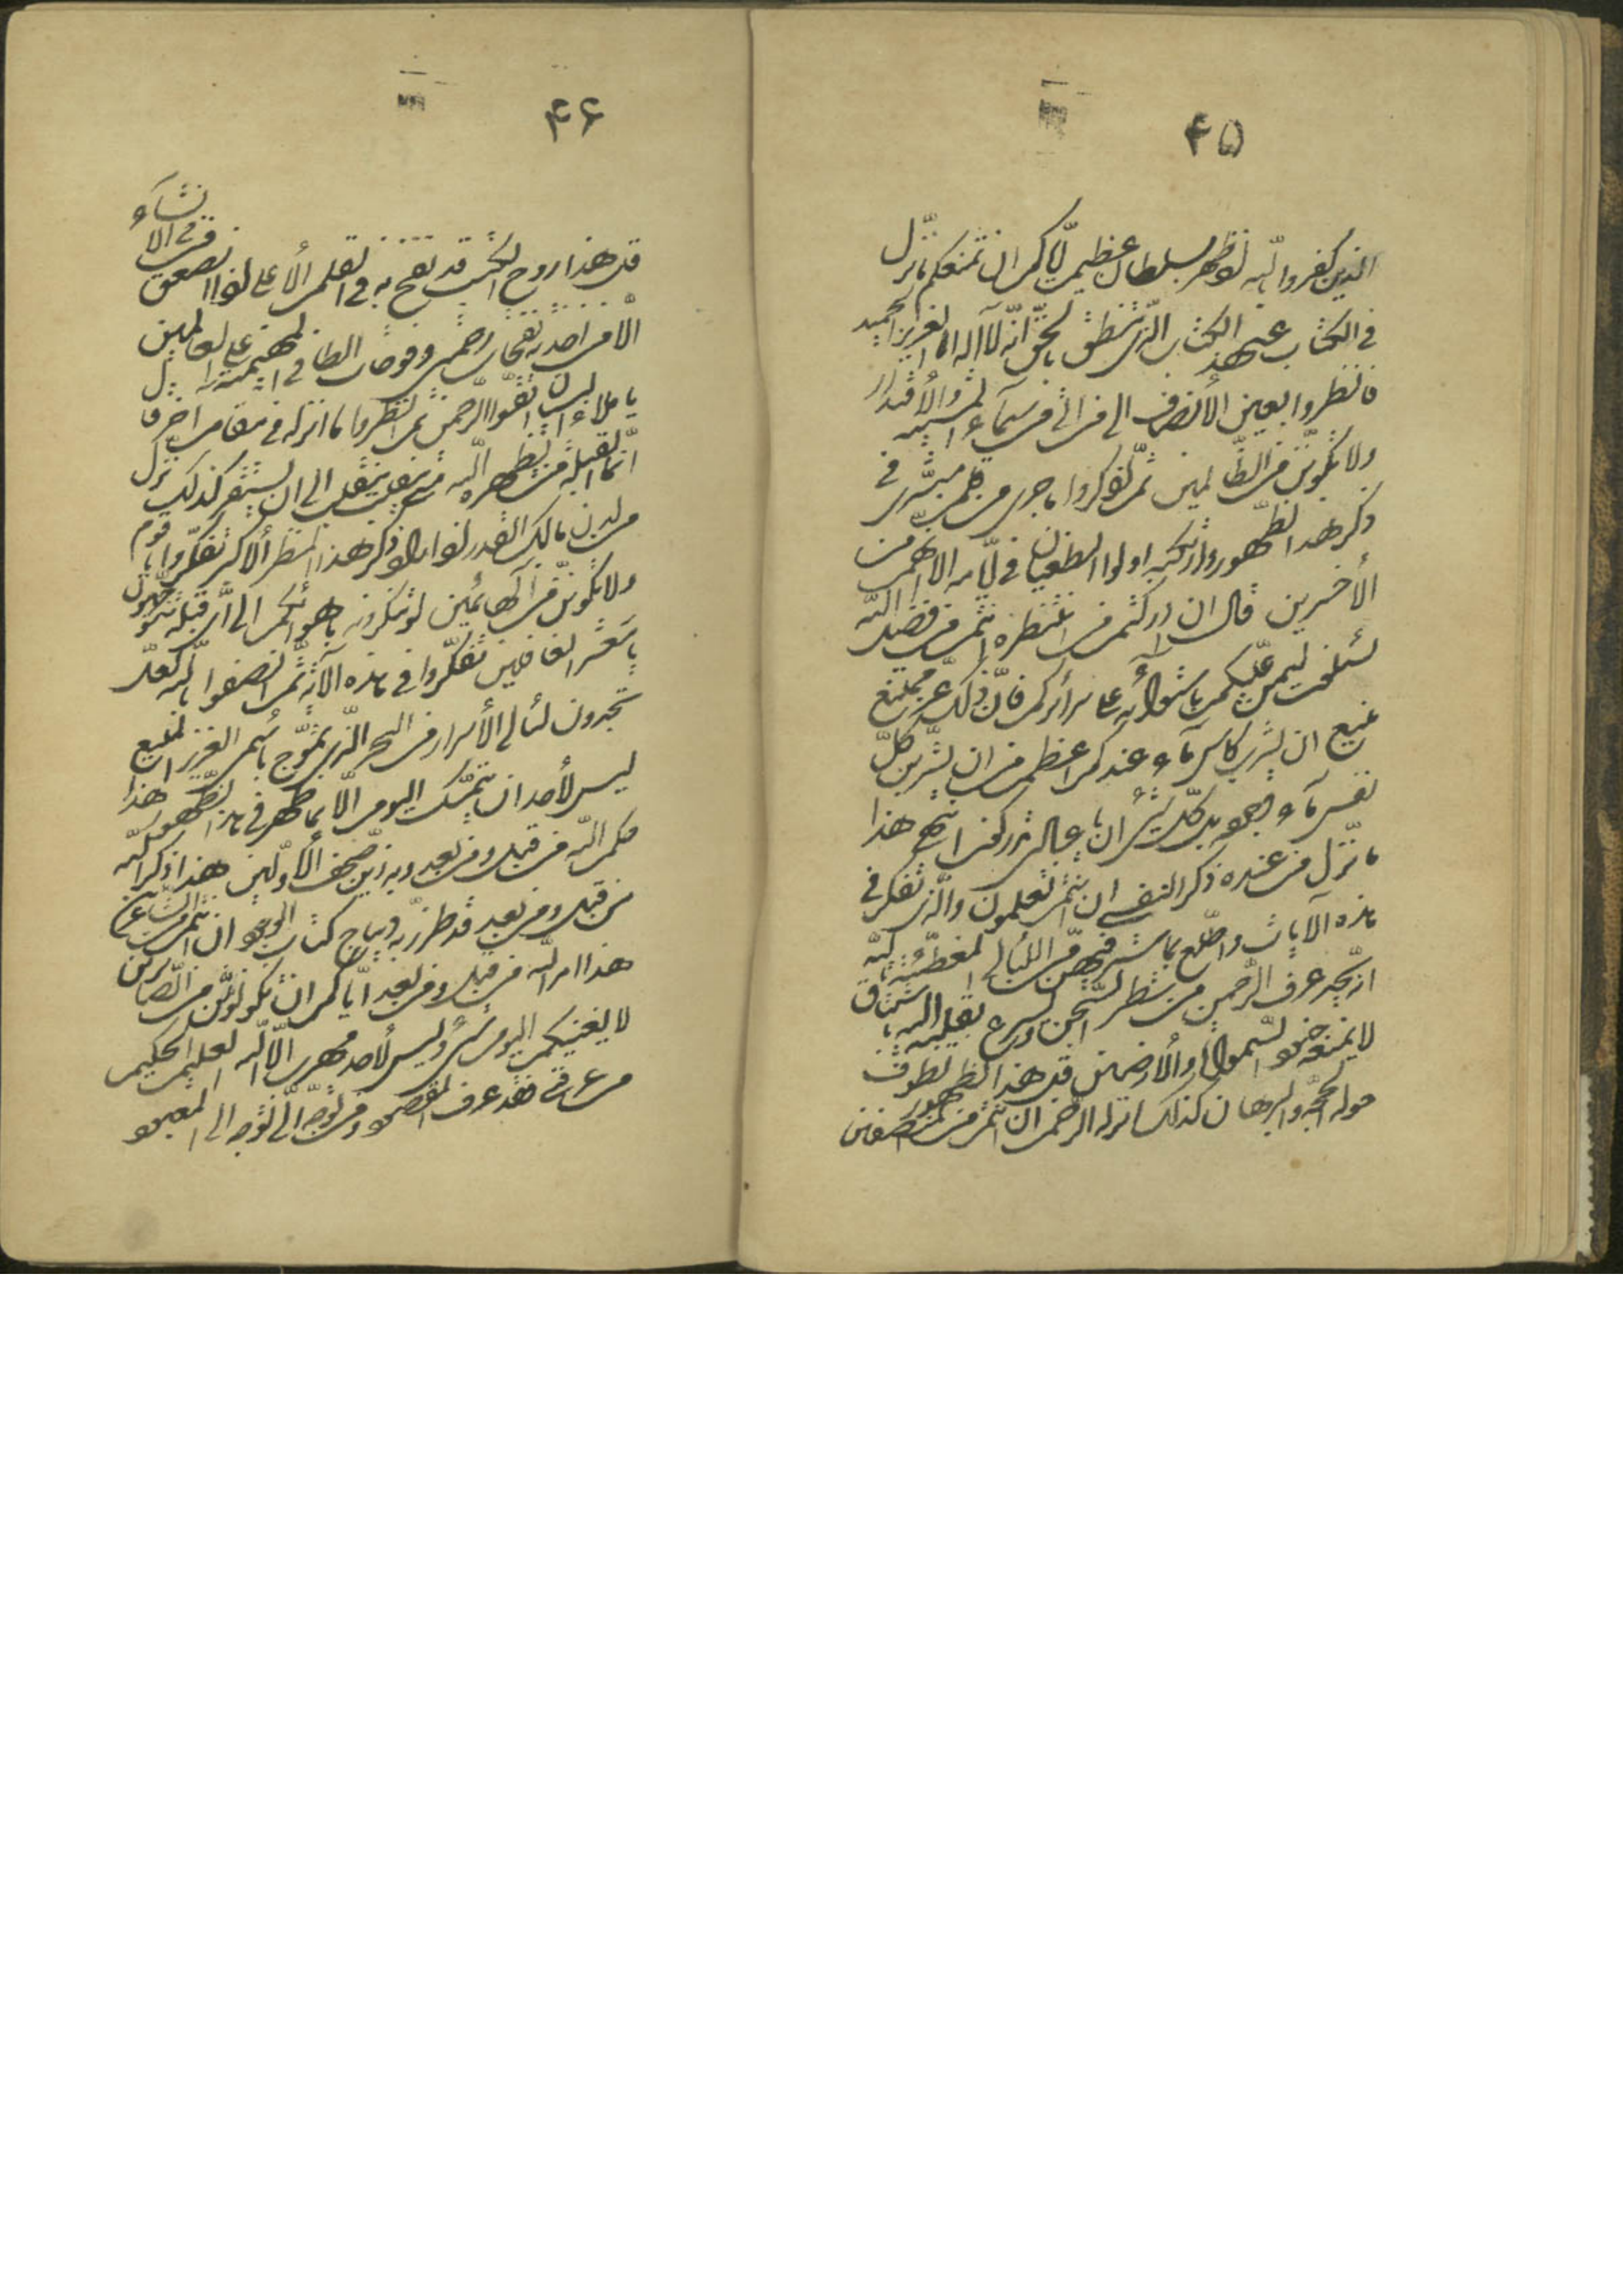 ۴۵
الذین کفروا بالله اذ ظهر بسلطان عظیم ایّاکم ان تمنعکم ما نزّل
فی الکتاب عن هذا الکتاب الذی ینطق بالحق انّه لا اله الا انا العزیز الحمید
فانظروا بعین الأنصاف الی من اتی من سمآء المشیّة والأقتدار
ولا تکوننّ من الظّالمین ثمّ اذکروا ما جری من قلم مبشّری فی
ذکر هذا الظّهور وما ارتکبه اولوا الطغیان فی ایّامه الا انّهم من
الأخسرین قال ان ادرکتم من نظهره انتم من فضل اللّه
تسئلون لیمنّ علیکم باستوائه علی سرائرکم فانّ ذلک عزّ ممتنع
منیع ان یشرب کأس مآء عندکم اعظم من ان تشربنّ کلّ
نفس مآء وجوده بل کلّ شیء ان یا عبادی تدرکون هذا
ما نزّل من عنده ذکرا لنفسی ان انتم تعلمون والّذی تفکّر فی
هذه الآیات واطّلع بما ستر فیهنّ من اللئالی تاللّه
انّه یجد عرف الرّحمن من شطر السّجن ویسرع بقلبه الیه باشتیاق
لا تمنعه جنود السّموات والأرضین قل هذا لظهور تطوف
حوله الحجّة والبرهان کذلک انزله الرّحمن ان انتم من المنصفین
۴۶
قل هذا روح الکتب قد نفخ به فی القلم الأعلی وانصعق من فی الانشآء
الّا من اخذته نفحات رحمتی وفوحات الطافی المهیمنة علی العالمین
یا ملاء البیان اتّقوا الرّحمن ثمّ انظروا ما انزله فی مقام آخر قال
انّما القبلة من یظهره اللّه متی ینقلب تنقلب الی ان یستقر کذلک نزّل
من لدن مالک القدر اذ اراد ذکر هذا المنظر الأکبر تفکّروا یا قوم
ولا تکوننّ من الهائمین لو تنکرونه باهوائکم الی ایّة قبلة تتوجّهون
یا معشر الغافلین تفکّروا فی هذه الآیة ثمّ انصفوا باللّه لعلّ
تجدون لئالی الأسرار من البحر الّذی تموّج باسمی العزیز المنیع
لیس لأحد ان یتمسّک الیوم الّا بما ظهر فی هذا الظّهور هذا
حکم اللّه من قبل ومن بعد وبه زیّن صحف الأوّلین هذا ذکر اللّه
من قبل ومن بعد قد طرّز به دیباج کتاب الوجود ان انتم من الشّاعرین
هذا امر اللّه من قبل ومن بعد ایّاکم ان تکوننّ من الصّاغرین
لا یغنیکم الیوم شیء ولیس لأحد مهرب الّا اللّه العلیم الحکیم
من عرفنی فقد عرف المقصود ومن توجّه الیّ توجّه الی المعبود